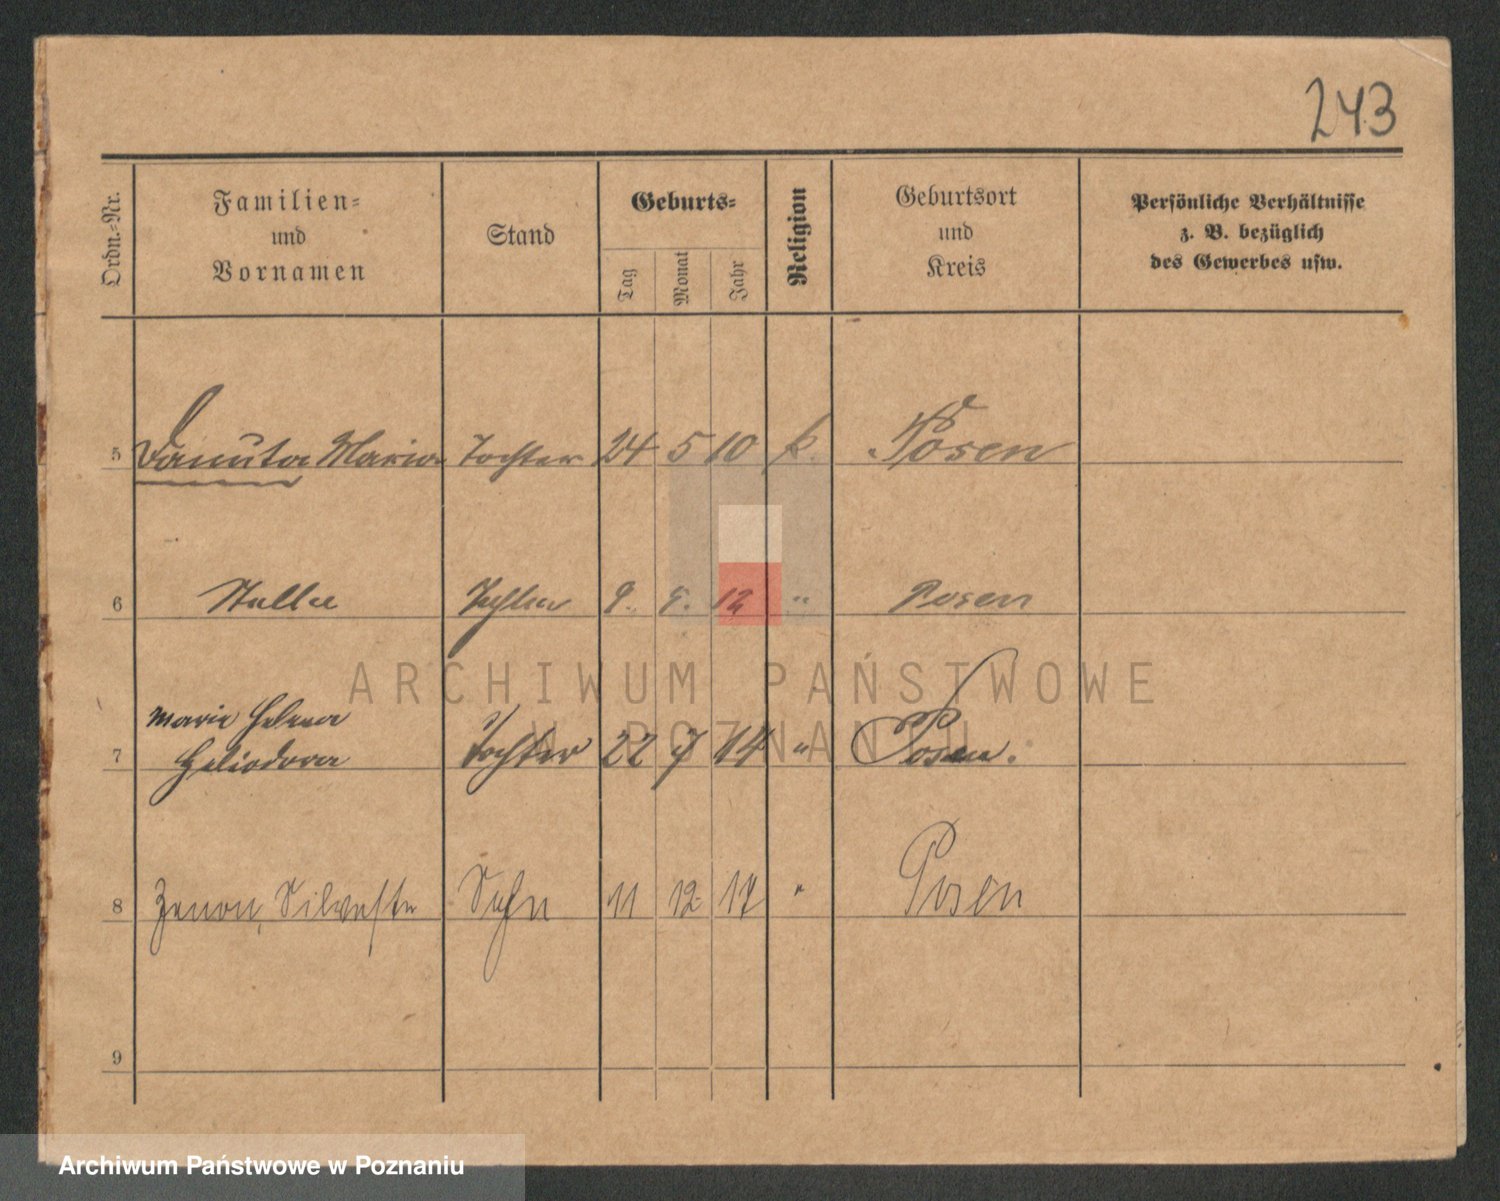 243
Ordn.=Nr.
Familien=
und
Vornamen
Stand
Geburts=
Tag
Monat
Jahr
Religion
Geburtsort
und
Kreis
Persönliche Verhältnisse
z. B. bezüglich
des Gewerbes usw.
5 Danuta Maria Tochter 24 5 10 k. Posen
6 Stella Tochter 9. 12 " Posen
ARCHIWUM PAŃSTWOWE
W POZNANIU
Marie Helena
7 Heliodora Tochter 22 7 14 " Posen.
8 Zenon, Silvester Sohn 11 12. 17 " Posen
9
Archiwum Państwowe w Poznaniu